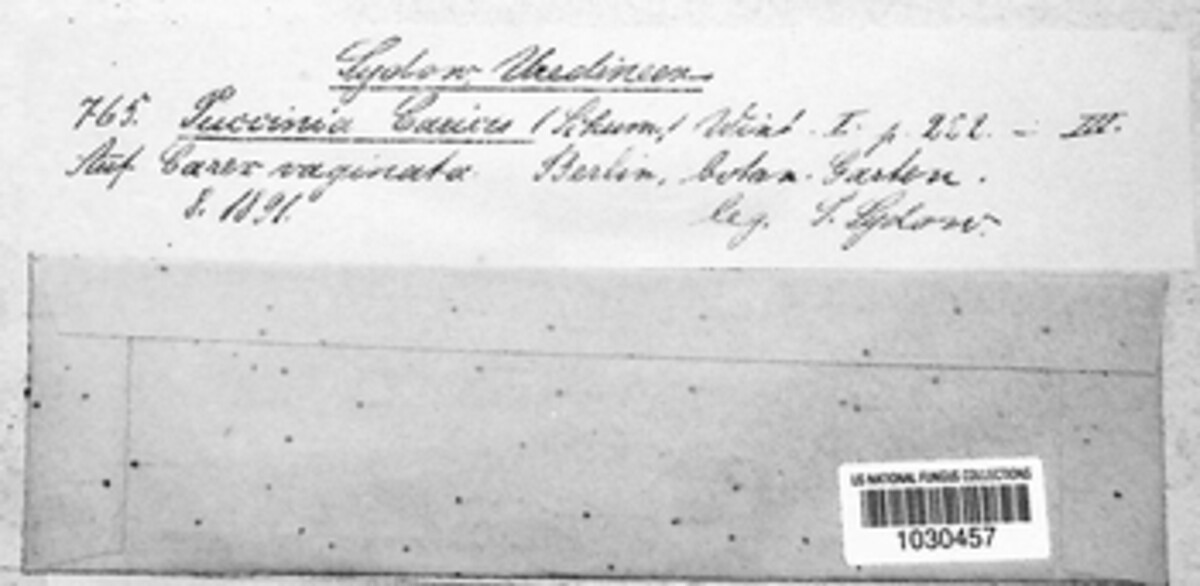 Sydow, Uredineen
765. Puccinia Caricis (Schum.) Wint. I. p. 222. - III.
Auf Carex vaginata Berlin, botan. Garten.
8. 1891. leg. P. Sydow.
US NATIONAL FUNGUS COLLECTIONS
1030457